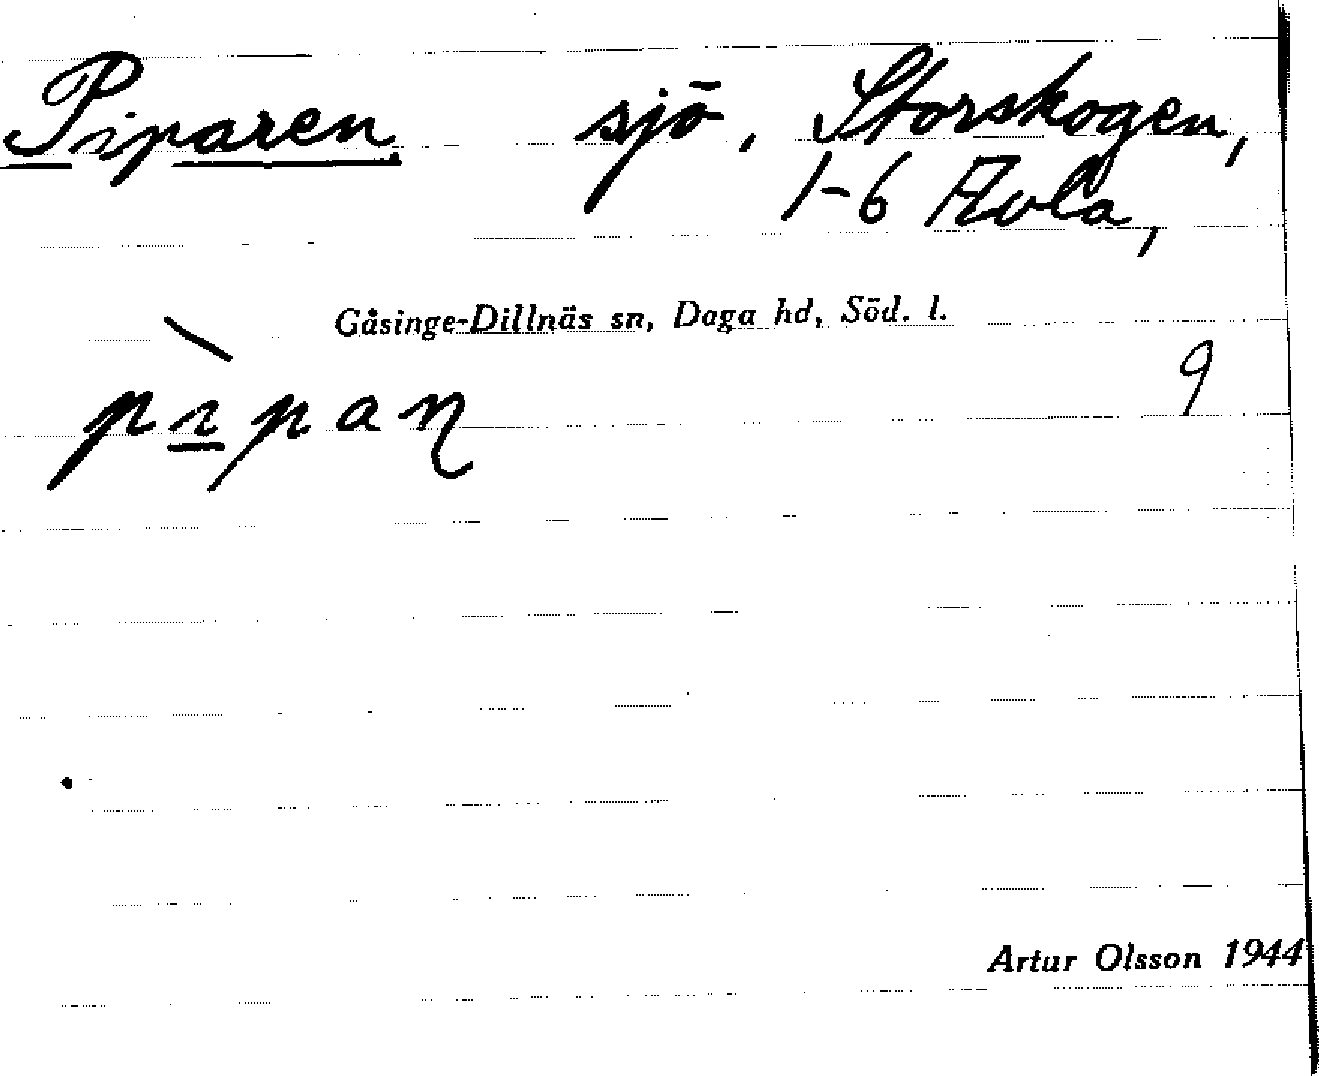 Piparen, sjö, Storskogen,
1-6 Avla,
Gåsinge-Dillnäs sn, Daga hd, Söd. l.
9
Artur Olsson 1944